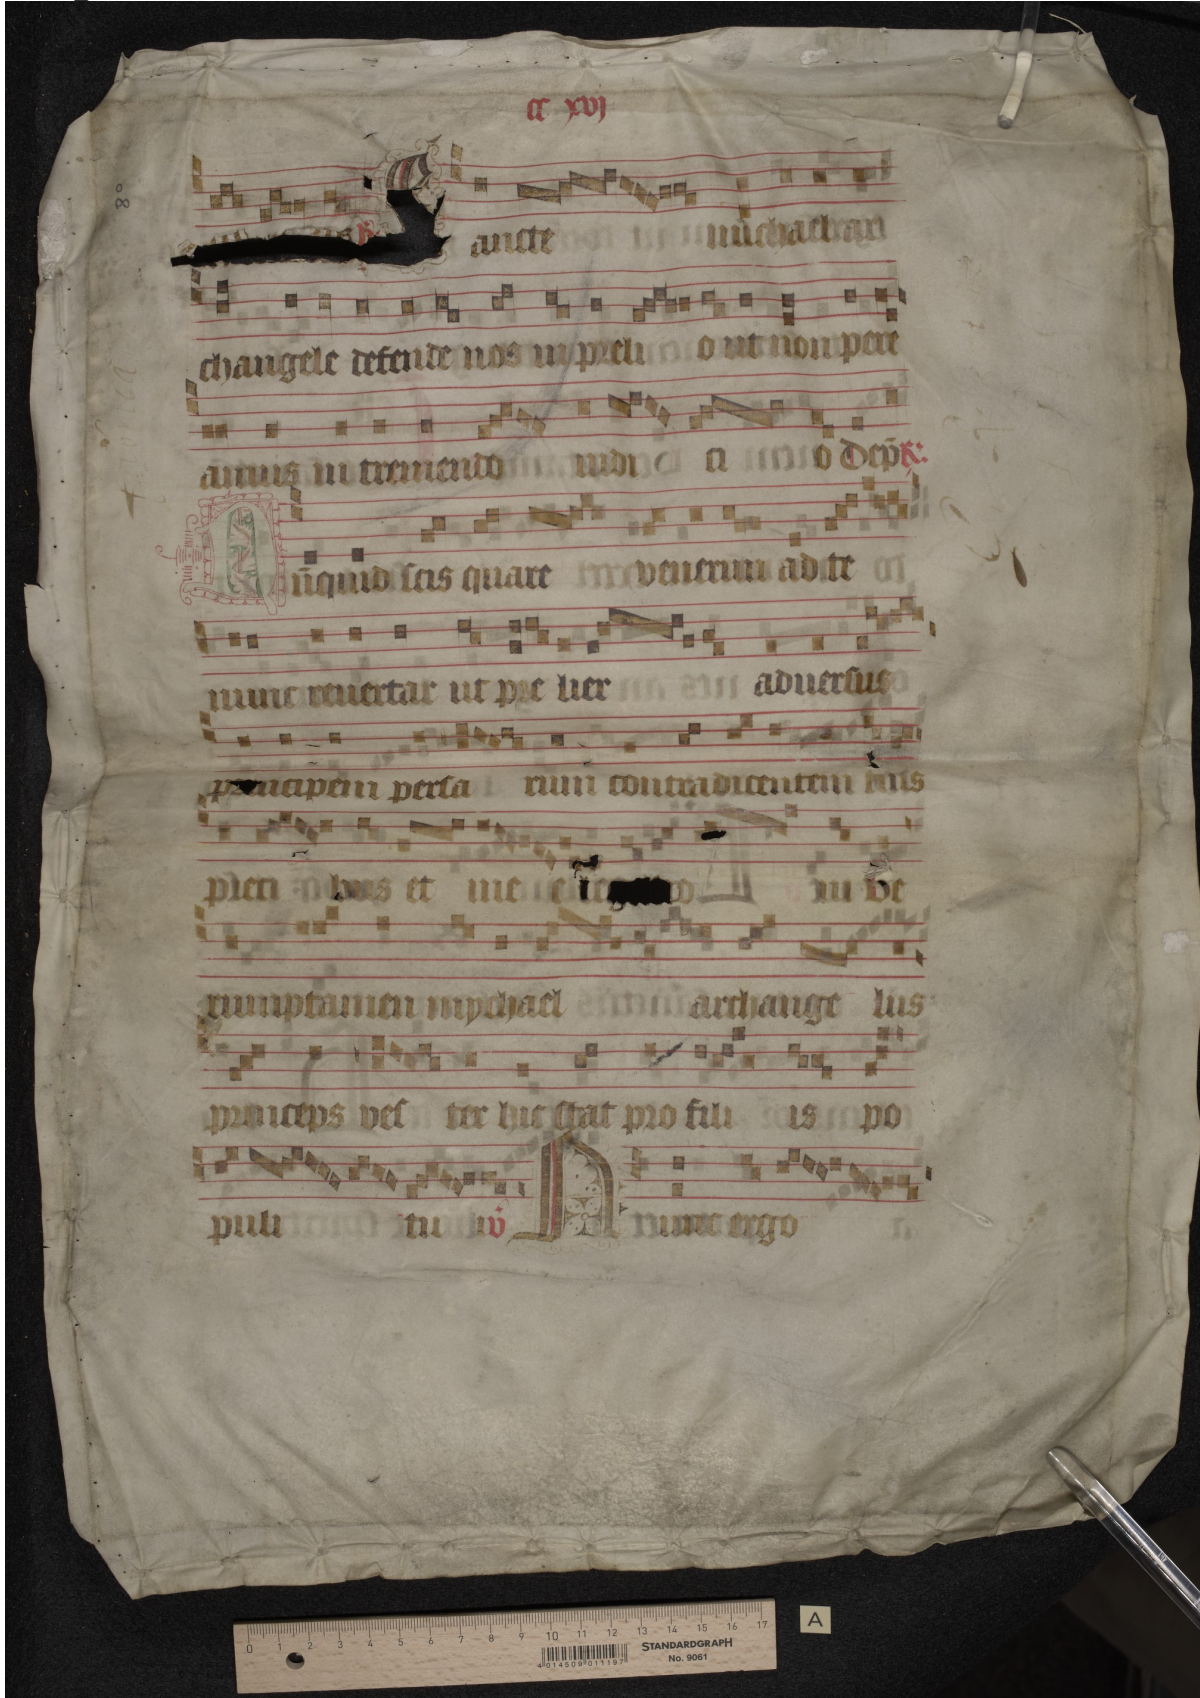 CC XVI
80
ancte michael ar
changele defende nos in preli o ut non pere
amus in tremendo iudi ci o Dep̄ R:
Nūquid scis quare venerim ad te
nunc revertar ut pre lier adversus
principem persa rum contradicentem huis
preci bus et me
rumptamen mychael archange lus
princeps ves ter hic stat pro fili is po
puli tu i v̄ N unc ergo
0 1 2 3 4 5 6 7 8 9 10 11 12 13 14 15 16 17
4 014509 011197
STANDARDGRAPH
No. 9061
A